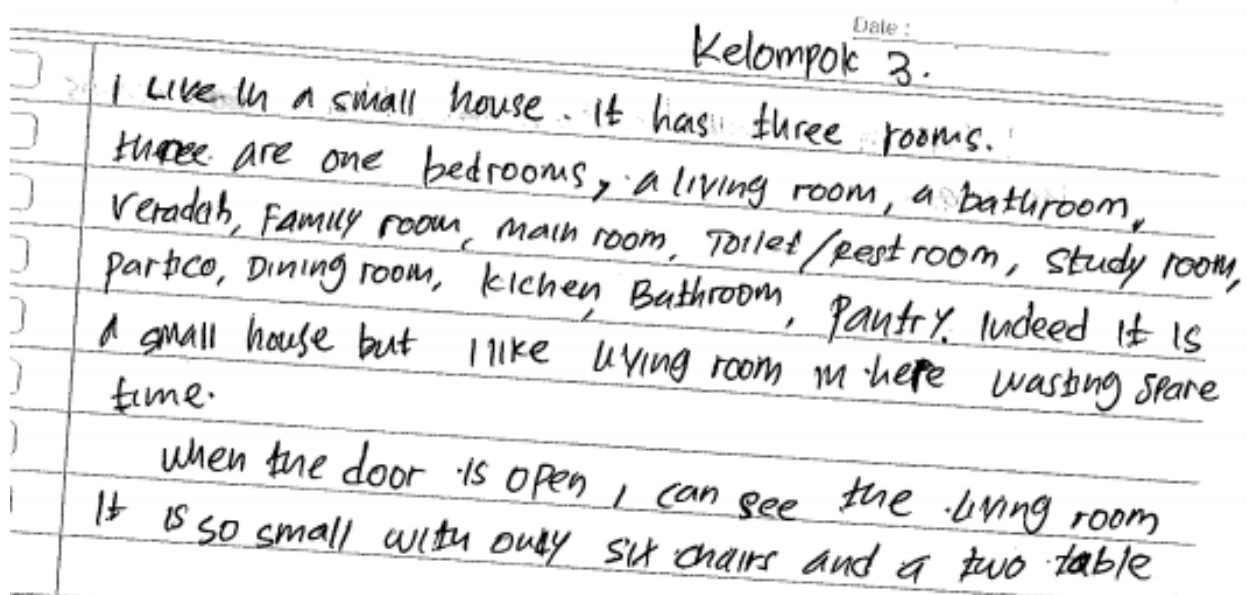 Date :
Kelompok 3.
I Live in a small house. It has three rooms.
there are one bedrooms, a living room, a bathroom,
Veradah, Family room, main room, Toilet/Rest room, Study room,
Partico, Dining room, kichen, Bathroom, Pantry. Indeed It Is
a small house but I like living room in here wasting spare
time.
when the door is open, I can see the living room
It is so small with only six chairs and a two table